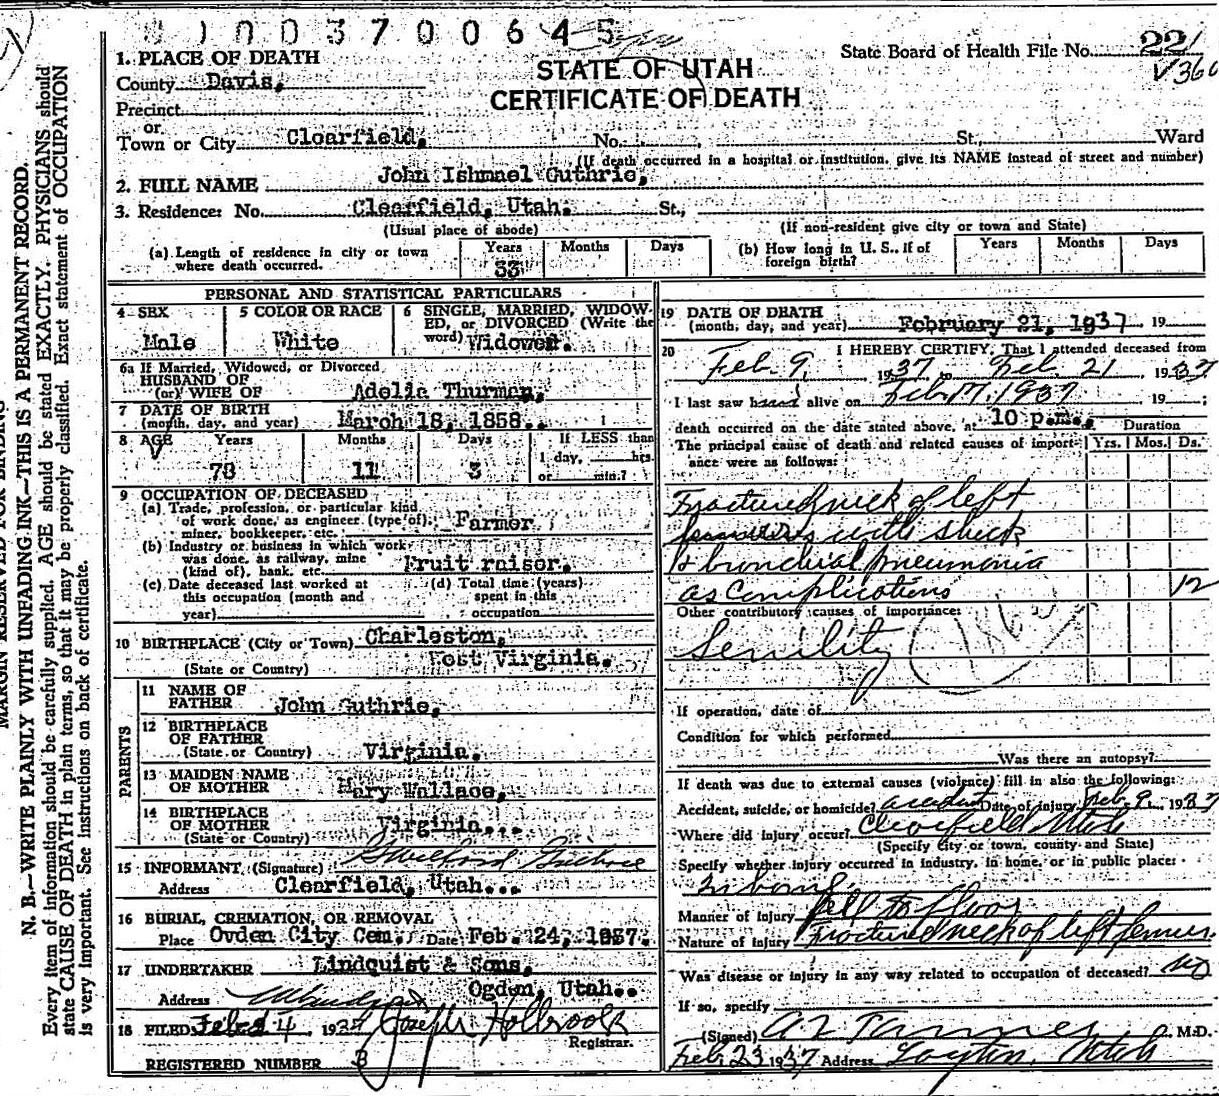 0003700645
State Board of Health File No. 221
V360
STATE OF UTAH
CERTIFICATE OF DEATH
1. PLACE OF DEATH
County Davis,
Precinct
or
Town or City Clearfield, No. St., Ward
(If death occurred in a hospital or institution, give its NAME instead of street and number)
2. FULL NAME John Ishmael Guthrie,
3. Residence: No. Clearfield, Utah. St.,
(Usual place of abode) (If non-resident give city or town and State)
(a) Length of residence in city or town where death occurred. Years 33 Months Days
(b) How long in U. S., if of foreign birth? Years Months Days
PERSONAL AND STATISTICAL PARTICULARS
4 SEX Male
5 COLOR OR RACE White
6 SINGLE, MARRIED, WIDOWED, or DIVORCED (Write the word) Widower.
6a If Married, Widowed, or Divorced
HUSBAND OF
(or) WIFE OF Adelia Thurman,
7 DATE OF BIRTH
(month, day, and year) March 18, 1858..
8 AGE Years 78 Months 11 Days 3 If LESS than 1 day, hrs. or min.?
9 OCCUPATION OF DECEASED
(a) Trade, profession, or particular kind of work done, as engineer (type of), miner, bookkeeper, etc. Farmer
(b) Industry or business in which work was done, as railway, mine (kind of), bank, etc. Fruit raiser.
(c) Date deceased last worked at this occupation (month and year)
(d) Total time (years) spent in this occupation
10 BIRTHPLACE (City or Town) Charleston,
(State or Country) West Virginia.
PARENTS
11 NAME OF FATHER John Guthrie,
12 BIRTHPLACE OF FATHER
(State or Country) Virginia.
13 MAIDEN NAME OF MOTHER Mary Wallace,
14 BIRTHPLACE OF MOTHER
(State or Country) Virginia...
15 INFORMANT (Signature) Guthrie
Address Clearfield, Utah...
16 BURIAL, CREMATION, OR REMOVAL
Place Ovden City Cem. Date Feb. 24, 1937.
17 UNDERTAKER Lindquist & Sons,
Ogden, Utah..
Address
18 FILED Feb. 24, 1937 Joseph Holbrook
Registrar.
REGISTERED NUMBER 3
19 DATE OF DEATH
(month, day, and year) February 21, 1937 19
20 I HEREBY CERTIFY, That I attended deceased from
Feb. 9, 1937, to Feb. 21 1937
I last saw h alive on Feb 17, 1937 19 ;
death occurred on the date stated above, at 10 p.m.. Duration
The principal cause of death and related causes of importance were as follows: Yrs. Mos. Ds.
Fractured neck of left
with shock
& bronchial pneumonia
as complications 12
Other contributory causes of importance:
Senility
If operation, date of
Condition for which performed
Was there an autopsy?
If death was due to external causes (violence) fill in also the following:
Accident, suicide, or homicide? accident Date of injury Feb. 9 1937
Where did injury occur? Clearfield Utah
(Specify City or town, county and State)
Specify whether injury occurred in industry, in home, or in public place:
In home.
Manner of injury fell to floor
Nature of injury Fractured neck of left femur.
Was disease or injury in any way related to occupation of deceased? no
If so, specify
(Signed) M.D.
Feb. 23 1937 Address Layton, Utah
MARGIN RESERVED FOR BINDING
N. B.—WRITE PLAINLY WITH UNFADING INK—THIS IS A PERMANENT RECORD.
Every item of information should be carefully supplied. AGE should be stated EXACTLY. PHYSICIANS should
state CAUSE OF DEATH in plain terms, so that it may be properly classified. Exact statement of OCCUPATION
is very important. See instructions on back of certificate.